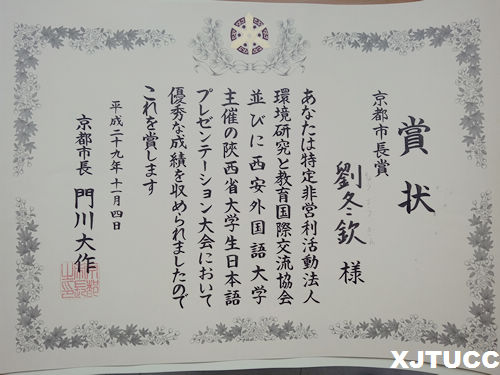 賞状
京都市長賞
劉冬欽様
あなたは特定非営利活動法人
環境研究と教育国際交流協会
並びに西安外国語大学
主催の陝西省大学生日本語
プレゼンテーション大会において
優秀な成績を収められましたので
これを賞します
平成二十九年十一月四日
京都市長 門川大作
XJTUCC